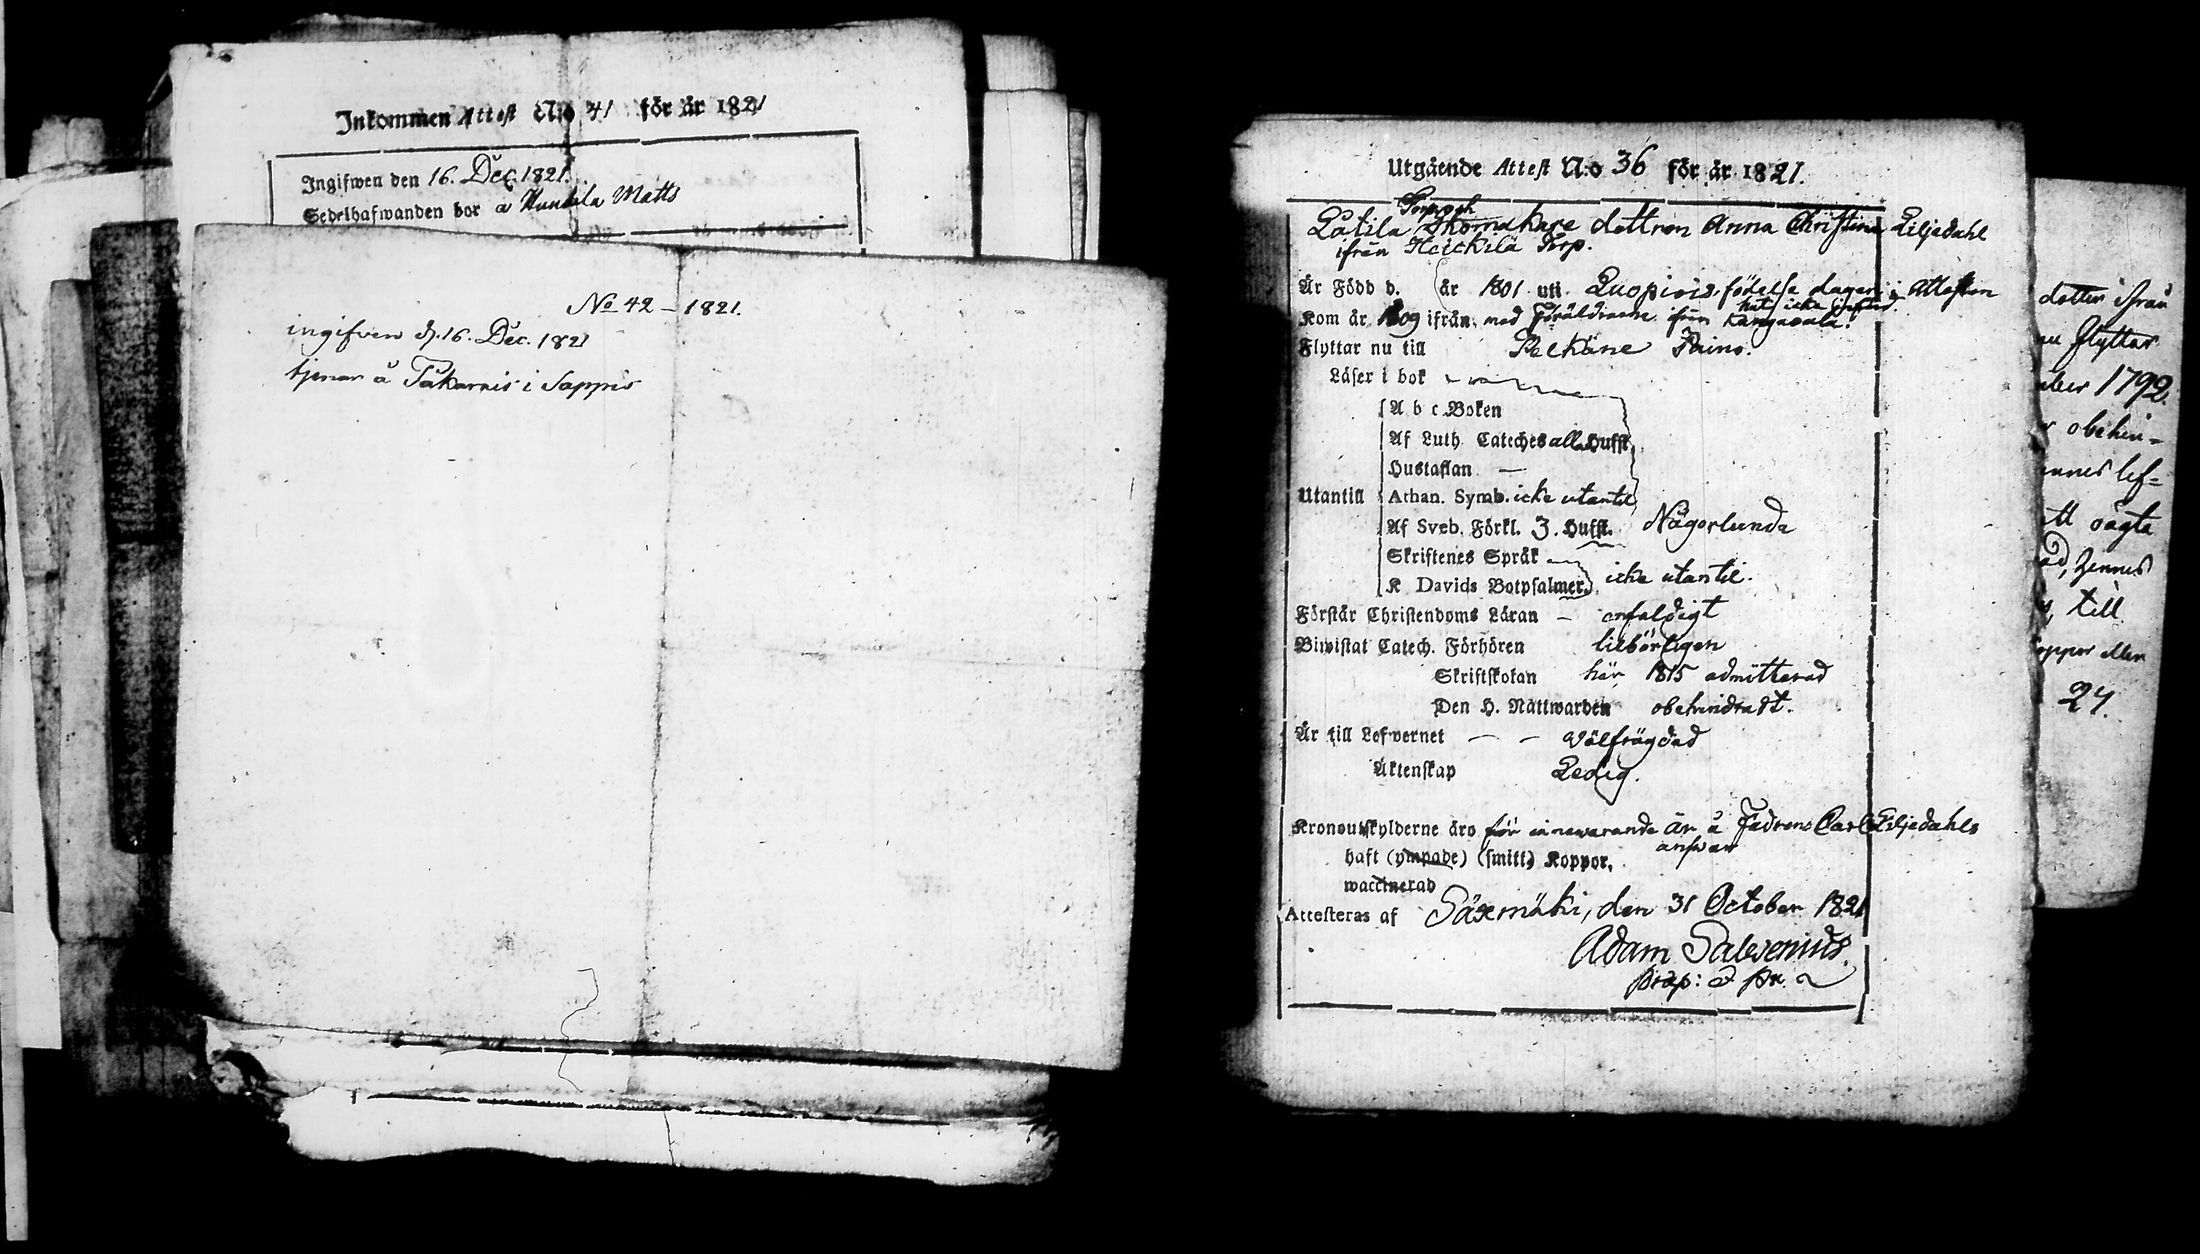 Inkommen Attest N:o 41 för år 1821
Ingifwen den 16. Dec. 1821.
Sedelhafwanden bor å Matts
No 42 – 1821.
ingifven d. 16. Dec. 1821
tjenar å Takarnis i Sappis
Utgående Attest N:o 36 för år 1821.
Torp och
Latila Skomakare dottren Anna Christina Liljedahl
ifrån Heickilä Torp.
Är Född d. år 1801 uti Luopiois, födelse dagen i Attesten
har icke
Kom år 1809 ifrån med Föräldrarne ifrån Kangasala.
Flyttar nu till Pelkäne
Läser i bok
A b c Boken
Af Luth. Cateches alla Hufst.
Hustaflan —
Utantill Athan. Symb. icke utantil
Af Sveb. Förkl. 3. Hufst. Någorlunda
Skriftenes Språk
K Davids Botpsalmer. icke utantil.
Förstår Christendoms Läran – enfaldigt
Biwistat Catech. Förhören tilbörligen
Skriftskolan här 1815 admitterad
Den H. Nattwarden obehindradt.
Är till Lefvernet – – välfrägdad
Äktenskap Ledig.
Kronoutskylderne äro för innewarande År å Fadrens Carl Liljedahls
answar
haft (ympade) (smitt) Koppor,
waccinerad
Attesteras af Säxmäki, den 31 October 1821
Adam Salvenius.
prap: & pr.
dotter ifrån
nu flyttar
1792.
obehin-
nnes lef=
ägta
ad, hennes
till
oppor eller
24.